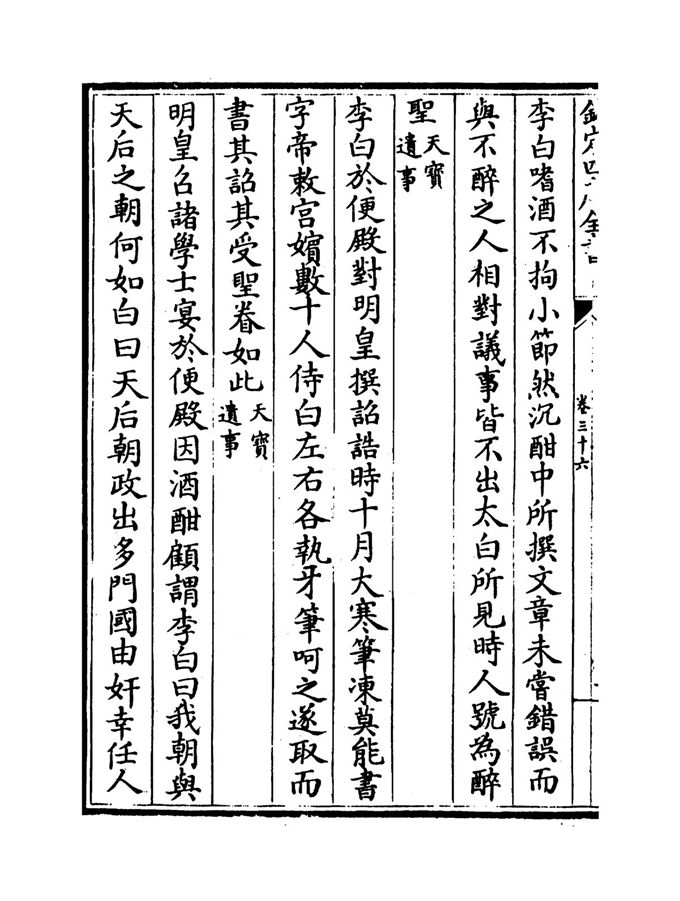 欽定四庫全書
卷三十六
李白嗜酒不拘小節然沉酣中所撰文章未嘗錯誤而
與不醉之人相對議事皆不出太白所見時人號為醉
聖天寶遺事
李白於便殿對明皇撰詔誥時十月大寒筆凍莫能書
字帝敕宮嬪數十人侍白左右各執牙筆呵之遂取而
書其詔其受聖眷如此天寶遺事
明皇召諸學士宴於便殿因酒酣顧謂李白曰我朝與
天后之朝何如白曰天后朝政出多門國由奸幸任人